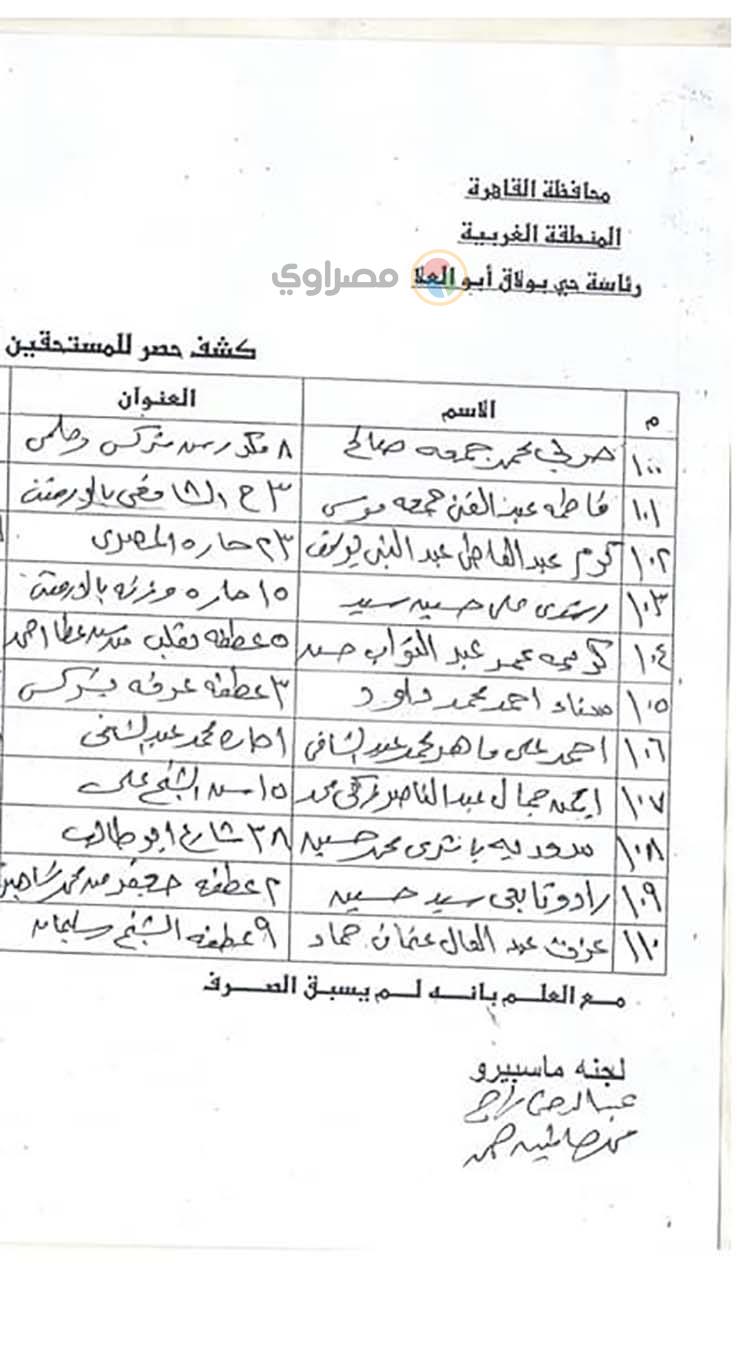 محافظة القاهرة
المنطقة الغربية
رئاسة حي بولاق أبو العلا
مصراوي
كشف حصر للمستحقين
م الاسم العنوان
١٠٠ محمد جمعه صالح ٨
١٠١ فاطمه عبد الغنى جمعه موسى ٣ ح الشافعى
١٠٢ كرم عبد الفاضل عبد النبى يوسف ٢٣ حاره المصرى
١٠٣ رشدى على حسين سيد ١٥ حاره
١٠٤ كريمه عمر عبد التواب حسن ٥ عطفه من سيد عطا احمد
١٠٥ سناء احمد محمد داود ٣ عطفه عرفه بشركس
١٠٦ احمد على ماهر محمد عبد الشافى ١ حاره محمد
١٠٧ ايمن جمال عبد الناصر زكى محمد ١٥ الشيخ على
١٠٨ محمد حسين ٣٨ شارع ابو طالب
١٠٩ سيد حسين ٢ عطفه جعفر من محمد
١١٠ عزت عبد العال عثمان حماد ٩ عطفه الشيخ سليمان
مع العلم بانه لم يسبق الصرف
لجنه ماسبيرو